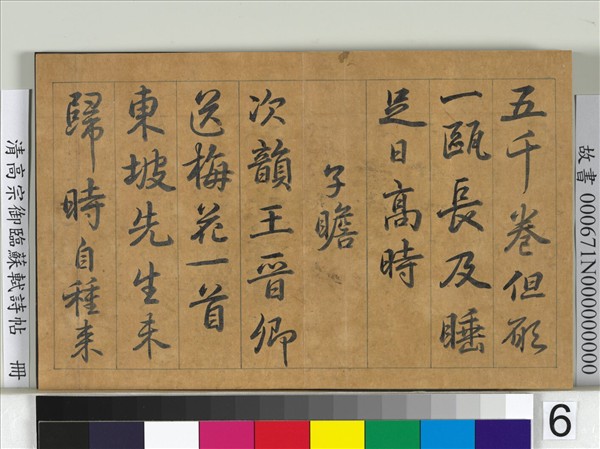 五千卷但願
一甌長及睡
足日高時
子瞻
次韻王晉卿
送梅花一首
東坡先生未
歸時自種來
清高宗御臨蘇軾詩帖 冊
故書 000671N000000000
6